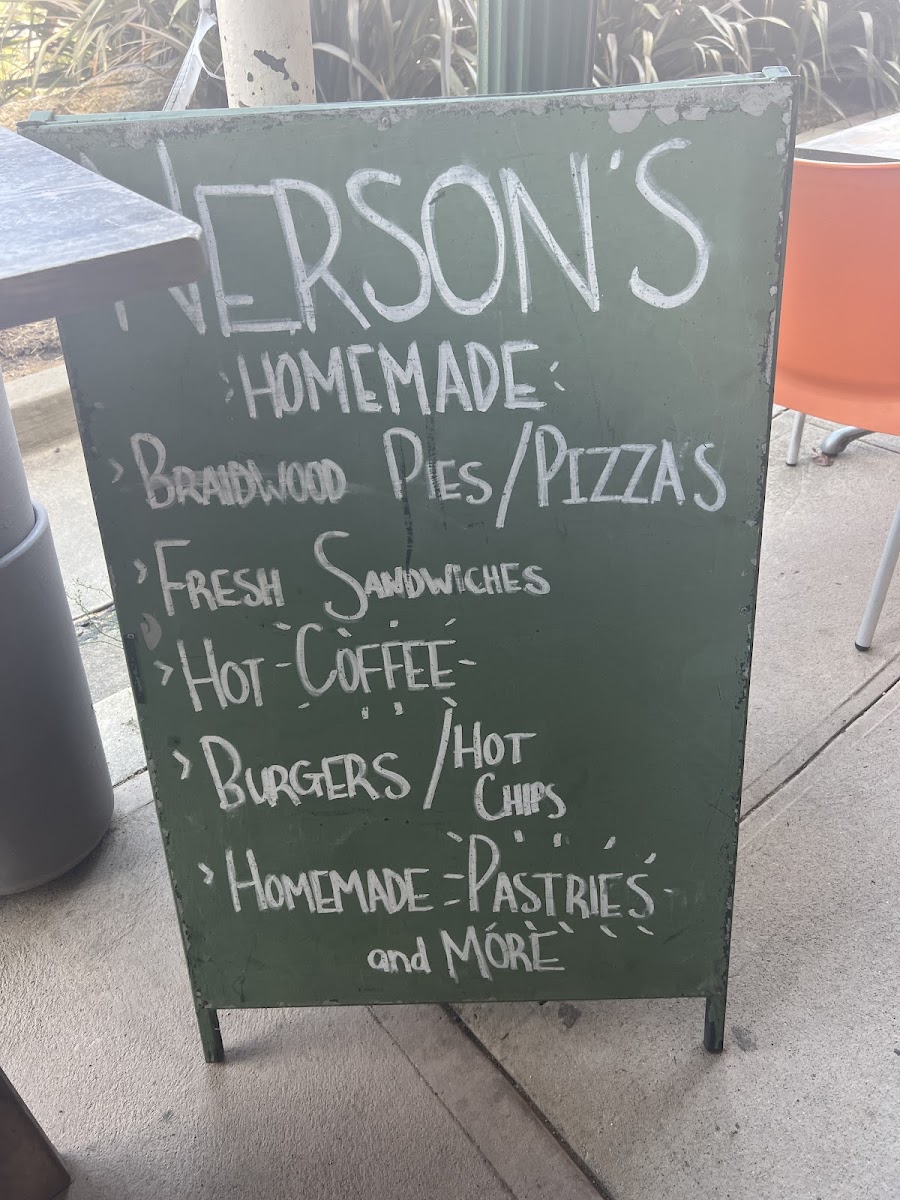 NERSON'S
HOMEMADE
> BRAIDWOOD PIES/PIZZA'S
> FRESH SANDWICHES
> HOT -COFFEE-
> BURGERS / HOT CHIPS
> HOMEMADE -PASTRIES-
and MORE